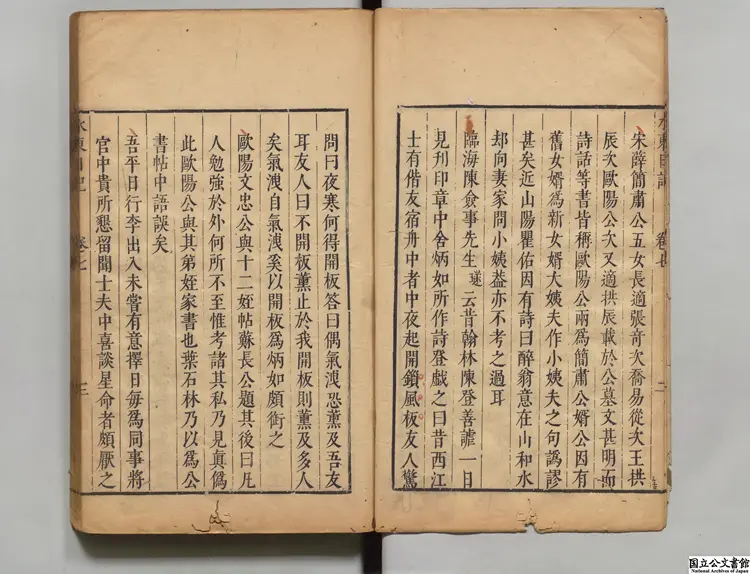 宋薛簡肅公五女長適張竒次喬易從次王拱
辰次歐陽公次又適拱辰載於公墓文甚明而
詩話等書皆稱歐陽公兩爲簡肅公婿公因有
舊女婿爲新女婿大姨夫作小姨夫之句譌謬
甚矣近山陽瞿佑因有詩曰醉翁意在山和水
却向妻家問小姨益亦不考之過耳
臨海陳僉事先生璲云昔翰林陳登善謔一日
見刋印章中舍炳如所作詩登戲之曰昔西江
士有偕友宿舟中者中夜起開鎖風板友人驚
問曰夜寒何得開板答曰偶氣洩恐薰及吾友
耳友人曰不開板薰止於我開板則薰及多人
矣氣洩自氣洩奚以開板爲炳如頗銜之
歐陽文忠公與十二姪帖蘇長公題其後曰凡
人勉強於外何所不至惟考諸其私乃見真僞
此歐陽公與其弟姪家書也葉石林乃以爲公
書帖中語誤矣
吾平日行李出入未嘗有意擇日每爲同事將
官中貴所懇留聞士夫中喜談星命者頗厭之
水東日記 卷七 二
水東日記 卷七 三
国立公文書館
National Archives of Japan